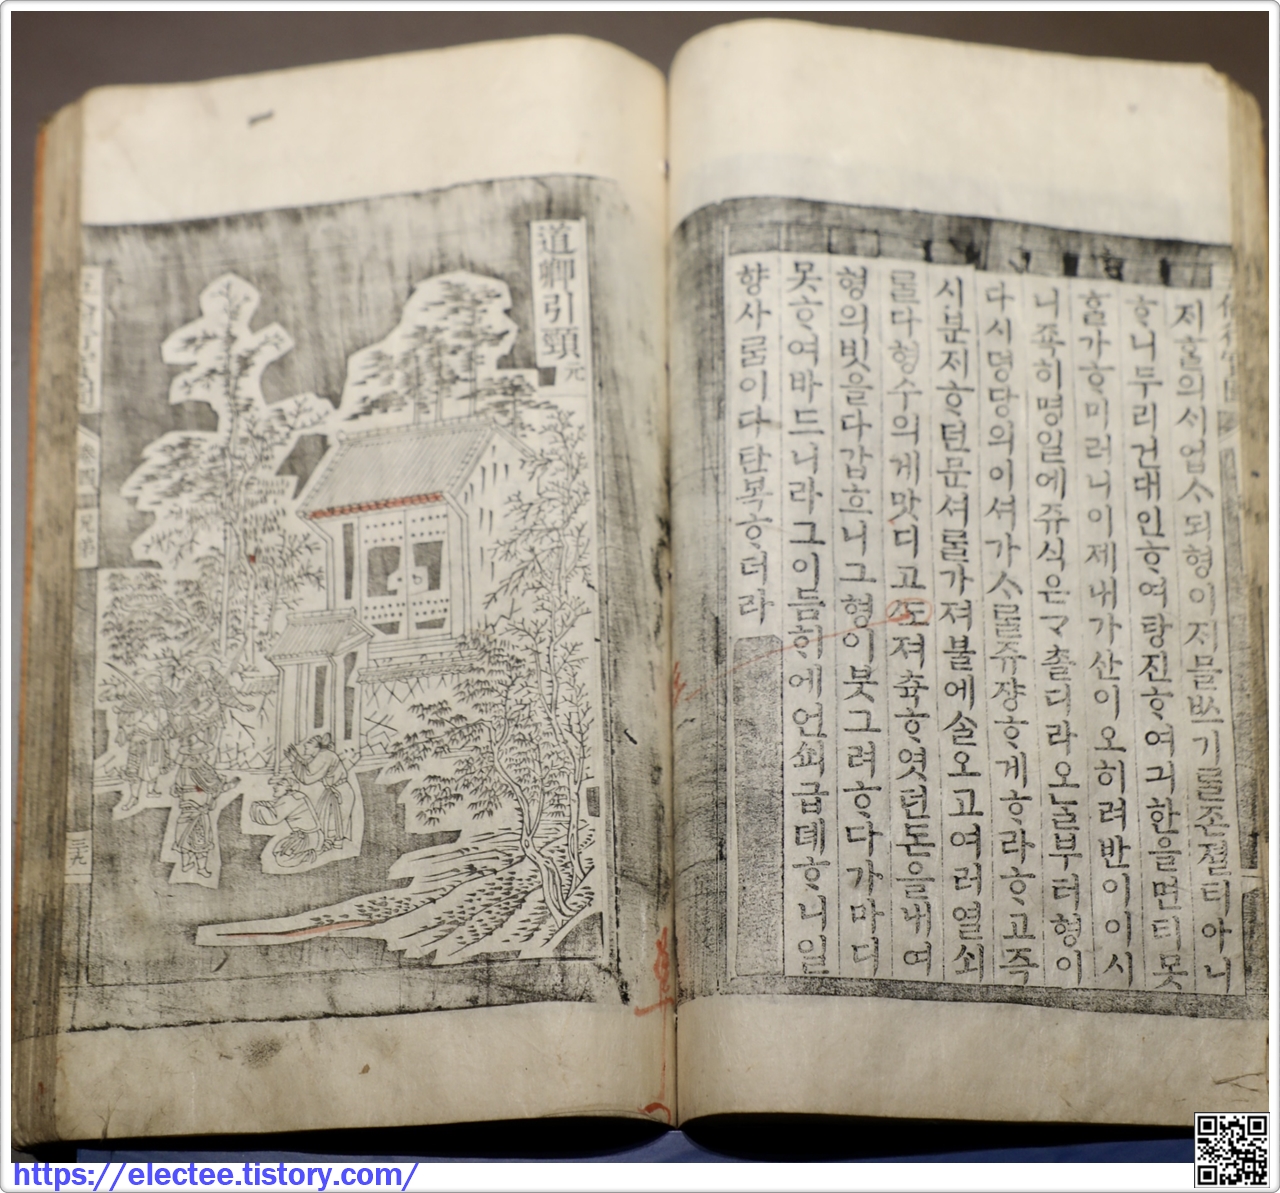 져ᄒᆞᆯ의셔업ᄉᆞ되형이저믈ᄡᅳ기ᄅᆞᆯ존졀티아니
ᄒᆞ니두리건대인ᄒᆞ여탕진ᄒᆞ여긔한을면티못
ᄒᆞᆯ가ᄒᆞ미러니이제내가산이오히려반이이시
니죡히명일에쥬식은ᄀᆞ촐디라오ᄂᆞᆯ부터형이
다시명당의이셔가ᄉᆞᄅᆞᆯ쥬쟝ᄒᆞ게ᄒᆞ라ᄒᆞ고즉
시분저ᄒᆞ던문셔ᄅᆞᆯ가져블에ᄉᆞᆯ오고여러열쇠
ᄅᆞᆯ다형수의게맛디고도져츅ᄒᆞ엿던돈을내여
형의빗을다갑흐니그형이븟그려ᄒᆞ다가마디
못ᄒᆞ여바드니라그이듬ᄒᆡ에언쇠급뎨ᄒᆞ니일
향사ᄅᆞᆷ이다탄복ᄒᆞ더라
道卿引頸 元
卷四
兄弟
三九
https://electee.tistory.com/